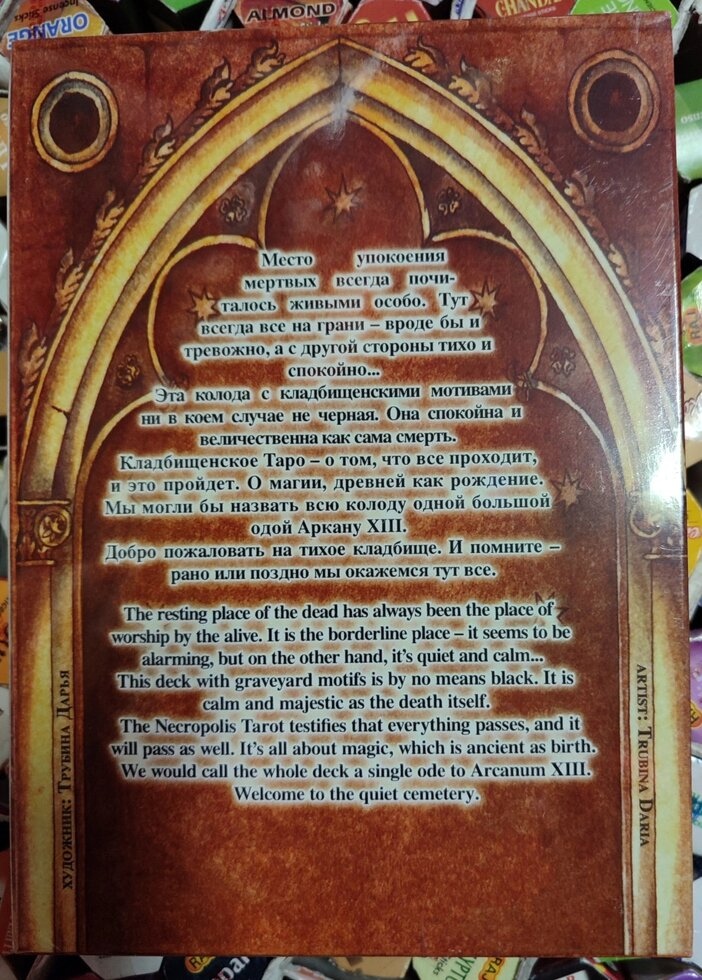 ORANGE
Incense Sticks
ALMOND
GRANDA
Место упокоения
мертвых всегда почи-
талось живыми особо. Тут
всегда все на грани – вроде бы и
тревожно, а с другой стороны тихо и
спокойно...
Эта колода с кладбищенскими мотивами
ни в коем случае не черная. Она спокойна и
величественна как сама смерть.
Кладбищенское Таро – о том, что все проходит,
и это пройдет. О магии, древней как рождение.
Мы могли бы назвать всю колоду одной большой
одой Аркану XIII.
Добро пожаловать на тихое кладбище. И помните –
рано или поздно мы окажемся тут все.
The resting place of the dead has always been the place of
worship by the alive. It is the borderline place – it seems to be
alarming, but on the other hand, it's quiet and calm...
This deck with graveyard motifs is by no means black. It is
calm and majestic as the death itself.
The Necropolis Tarot testifies that everything passes, and it
will pass as well. It's all about magic, which is ancient as birth.
We would call the whole deck a single ode to Arcanum XIII.
Welcome to the quiet cemetery.
художник: Трубина Дарья
artist: Trubina Daria